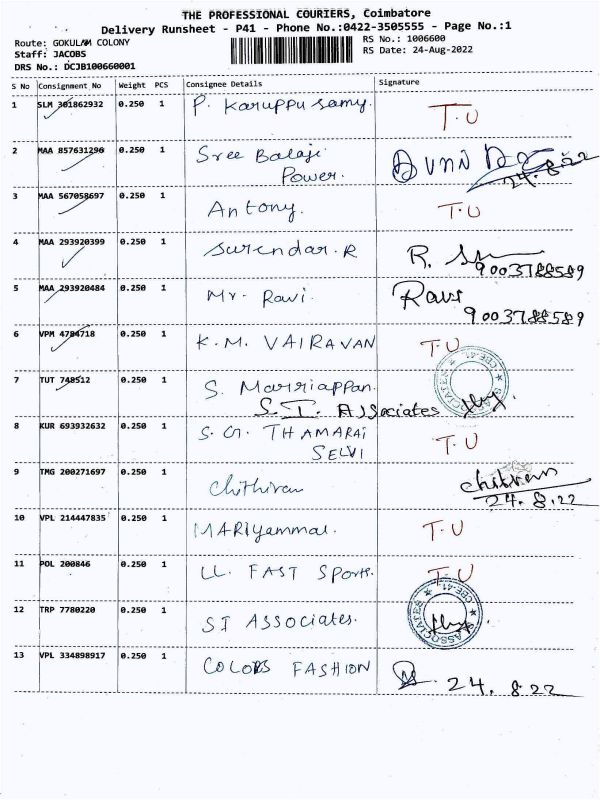 THE PROFESSIONAL COURIERS, Coimbatore
Delivery Runsheet - P41 - Phone No.:0422-3505555 - Page No.:1
Route: GOKULAM COLONY
RS No.: 1006600
Staff: JACOBS
RS Date: 24-Aug-2022
DRS No.: DCJB100660001
S No Consignment No Weight PCS Consignee Details Signature
1 SLM 301862932 0.250 1 P. Karuppusamy. T.U
2 MAA 857631290 0.250 1 Sree Balaji
Power. 24.8.22
3 MAA 567058697 0.250 1 Antony. T.U
4 MAA 293920399 0.250 1 Surendar.R R.
9003788589
5 MAA 293920484 0.250 1 Mr. Ravi. Ravi
9003788589
6 VPM 4784718 0.250 1 K.M. VAIRAVAN T.U
7 TUT 748512 0.250 1 S. Marriappan.
S.I. Associates
8 KUR 693932632 0.250 1 S.G. THAMARAI T.U
SELVI
9 TMG 200271697 0.250 1 Chithiran
24.8.22
10 VPL 214447835 0.250 1 MARIyammal. T.U
11 POL 200846 0.250 1 LL. FAST Sports. T.U
12 TRP 7780220 0.250 1 SI ASSociates. ASSOCIATES ★ CBE-41 ★
13 VPL 334898917 0.250 1 COLORS FASHION 24.8.22